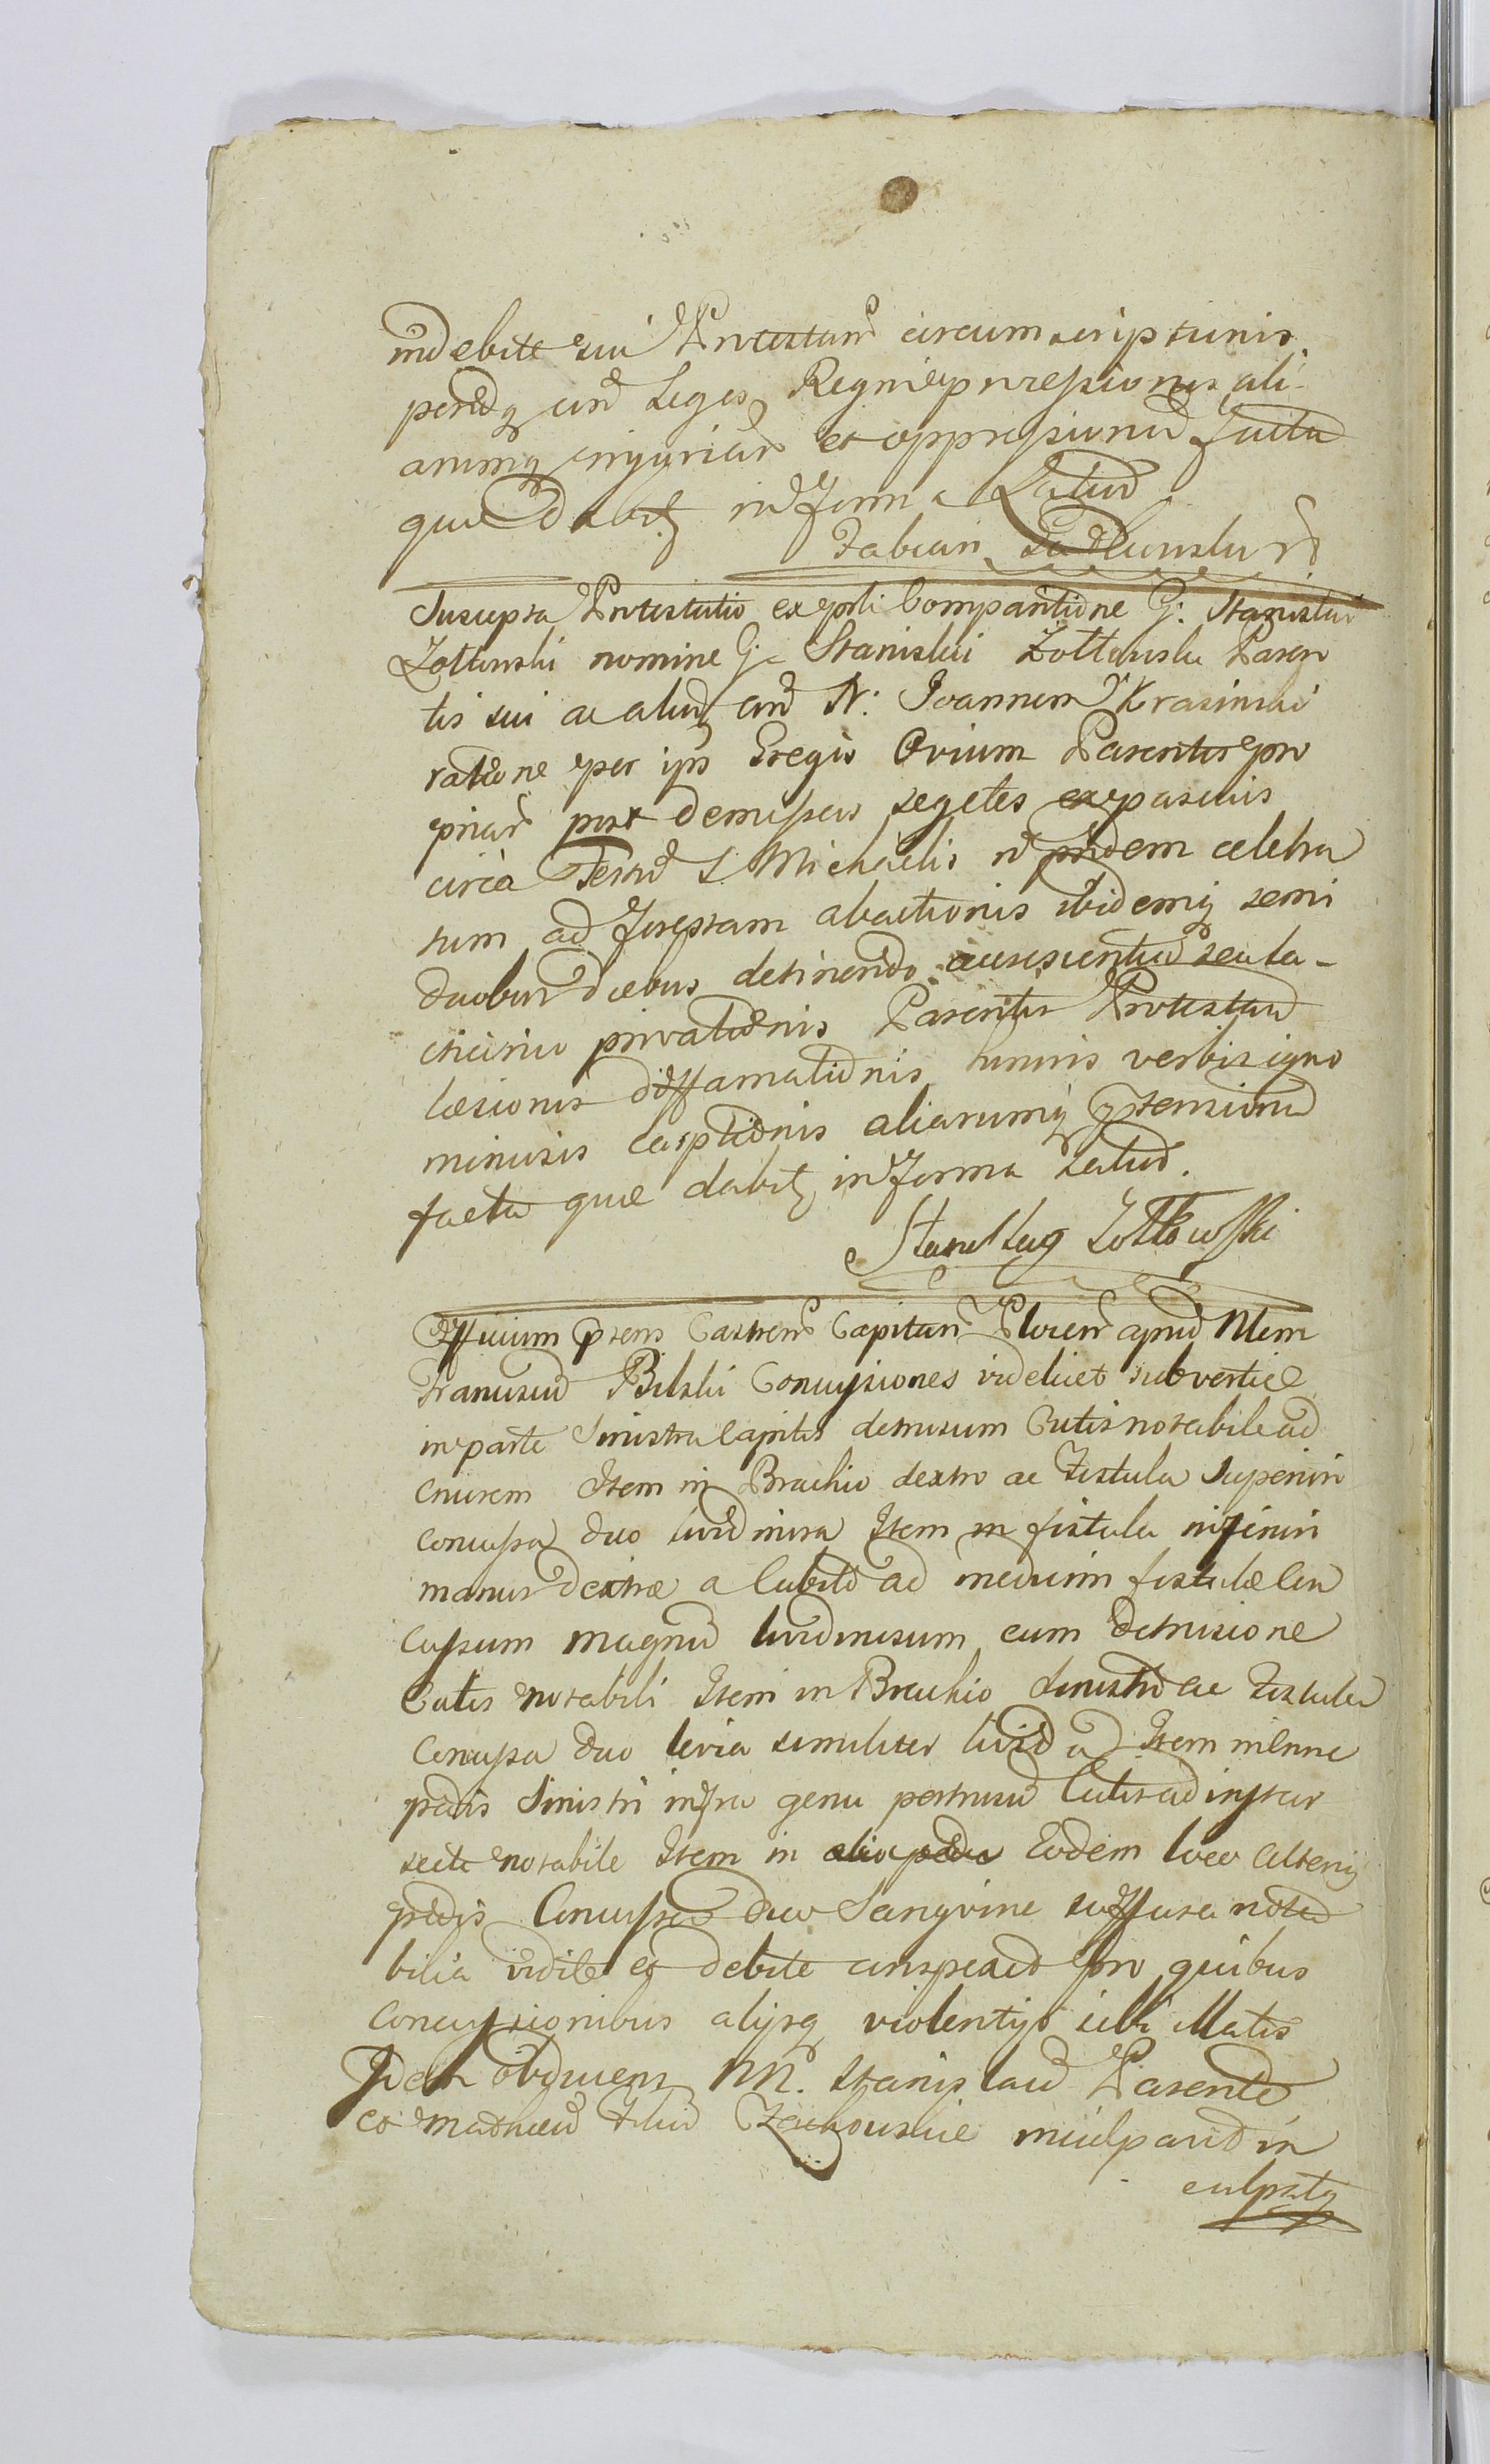 indebite sui Protestan circumscriptionis
pendq cird Leges Regni oppressionis ali
arumq injuriar et oppressionu facta
quae dabitq in forma Latiu
Fabian
Suscepta Protestatio ex psti Comparitione G: Stanislai
Zoltowski nomine G: Stanislai Zoltowski Paren
tis sui ac aliud cird N: Joannem Krasinski
ratione per ips Gregis Ovium Parentis pro
priar post demissas segetes expascuis
circa Festu S. Michaelis n pridem celebra
tum ad forestam abactionis ibidemq semi
duobus diebus detinendo accrescentia seu la-
cticinio privationis Parentis Protestan
laesionis diffamationis summis verbis igno
miniosis carptionis aliarumq ptensionu
facta quae dabitq in forma Latiu.
Stanislaq Zołtowski
Officium psens Castren Capitan Plocen apud Nlem
Franciscu Bilski Concussiones videlicet sub vertice
in parte Sinistra Capitis detrusum Cutis notabile ad
cruorem Item in Brachio dextro ac Fistula Superiori
Concussa duo livid Item in fistula inferiori
manus dextrae a Cubito ad medium fistulae Con
cussum magnu lividinosum cum detrusione
Cutis notabili Item in Brachio Sinistro ac Fistula
Concussa duo levia similiter livida Item in Crure
pedis Sinistri infra genu pertrusu Cutis ad instar
secte notabile Item in Eodem loco Alteriq
pedis Concussa duo Sangvine suffusa nota
bilia vidit et debite conspexit Pro quibus
Concussionibus alijsq violentijs sibi illatis
Idem obducens NN. Stanislau Parente
et Mathaeu Filiu inculpavit in
culpatq